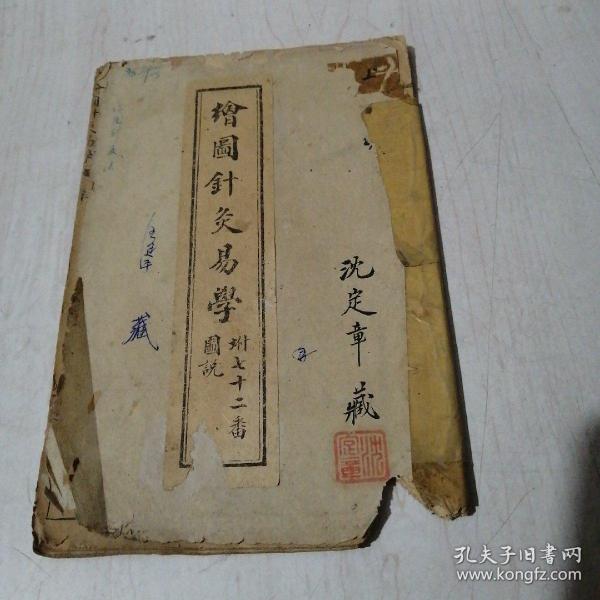 繪圖針灸易學
坿七十二番
圖說
沈定章藏
藏
上
沈定章
孔夫子旧书网
www.kongfz.com